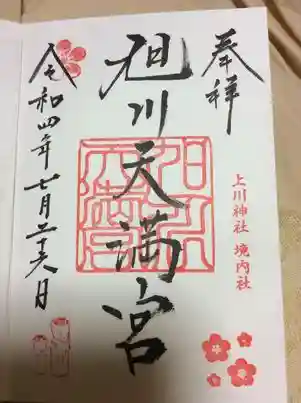 奉祥
上川神社 境内社
旭川天満宮
令和四年七月二十六日